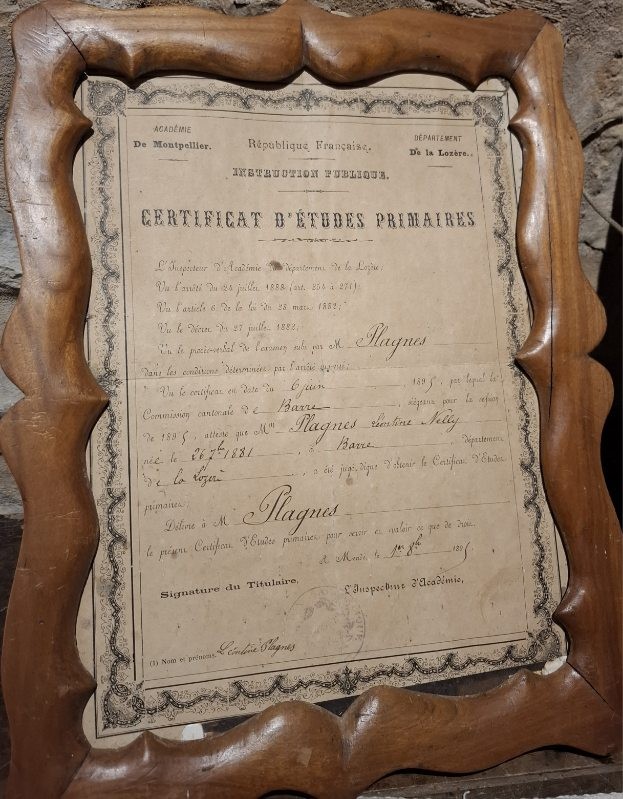 ACADÉMIE
De Montpellier.
République Française.
DÉPARTEMENT
De la Lozère.
INSTRUCTION PUBLIQUE.
CERTIFICAT D'ÉTUDES PRIMAIRES
L'Inspecteur d'Académie du département de la Lozère;
Vu l'arrêté du 24 juillet 1888 (art. 254 à 271);
Vu l'article 6 de la loi du 28 mars 1882;
Vu le décret du 27 juillet 1882;
Vu le procès-verbal de l'examen subi par M Plagnes
dans les conditions déterminées par l'arrêté
Vu le certificat en date du 6 juin 1895, par lequel la
Commission cantonale de Barre, siégeant pour la session
de 1895, atteste que Mlle Plagnes Léontine Nelly
née le 26 7bre 1881, à Barre, département
de la Lozère, a été jugé digne d'obtenir le Certificat d'Études
primaires;
Délivre à M Plagnes
le présent Certificat d'Études primaires pour servir et valoir ce que de droit.
A Mende, le 1er 8bre 1895
Signature du Titulaire,
L'Inspecteur d'Académie,
(1) Nom et prénoms. Léontine Plagnes